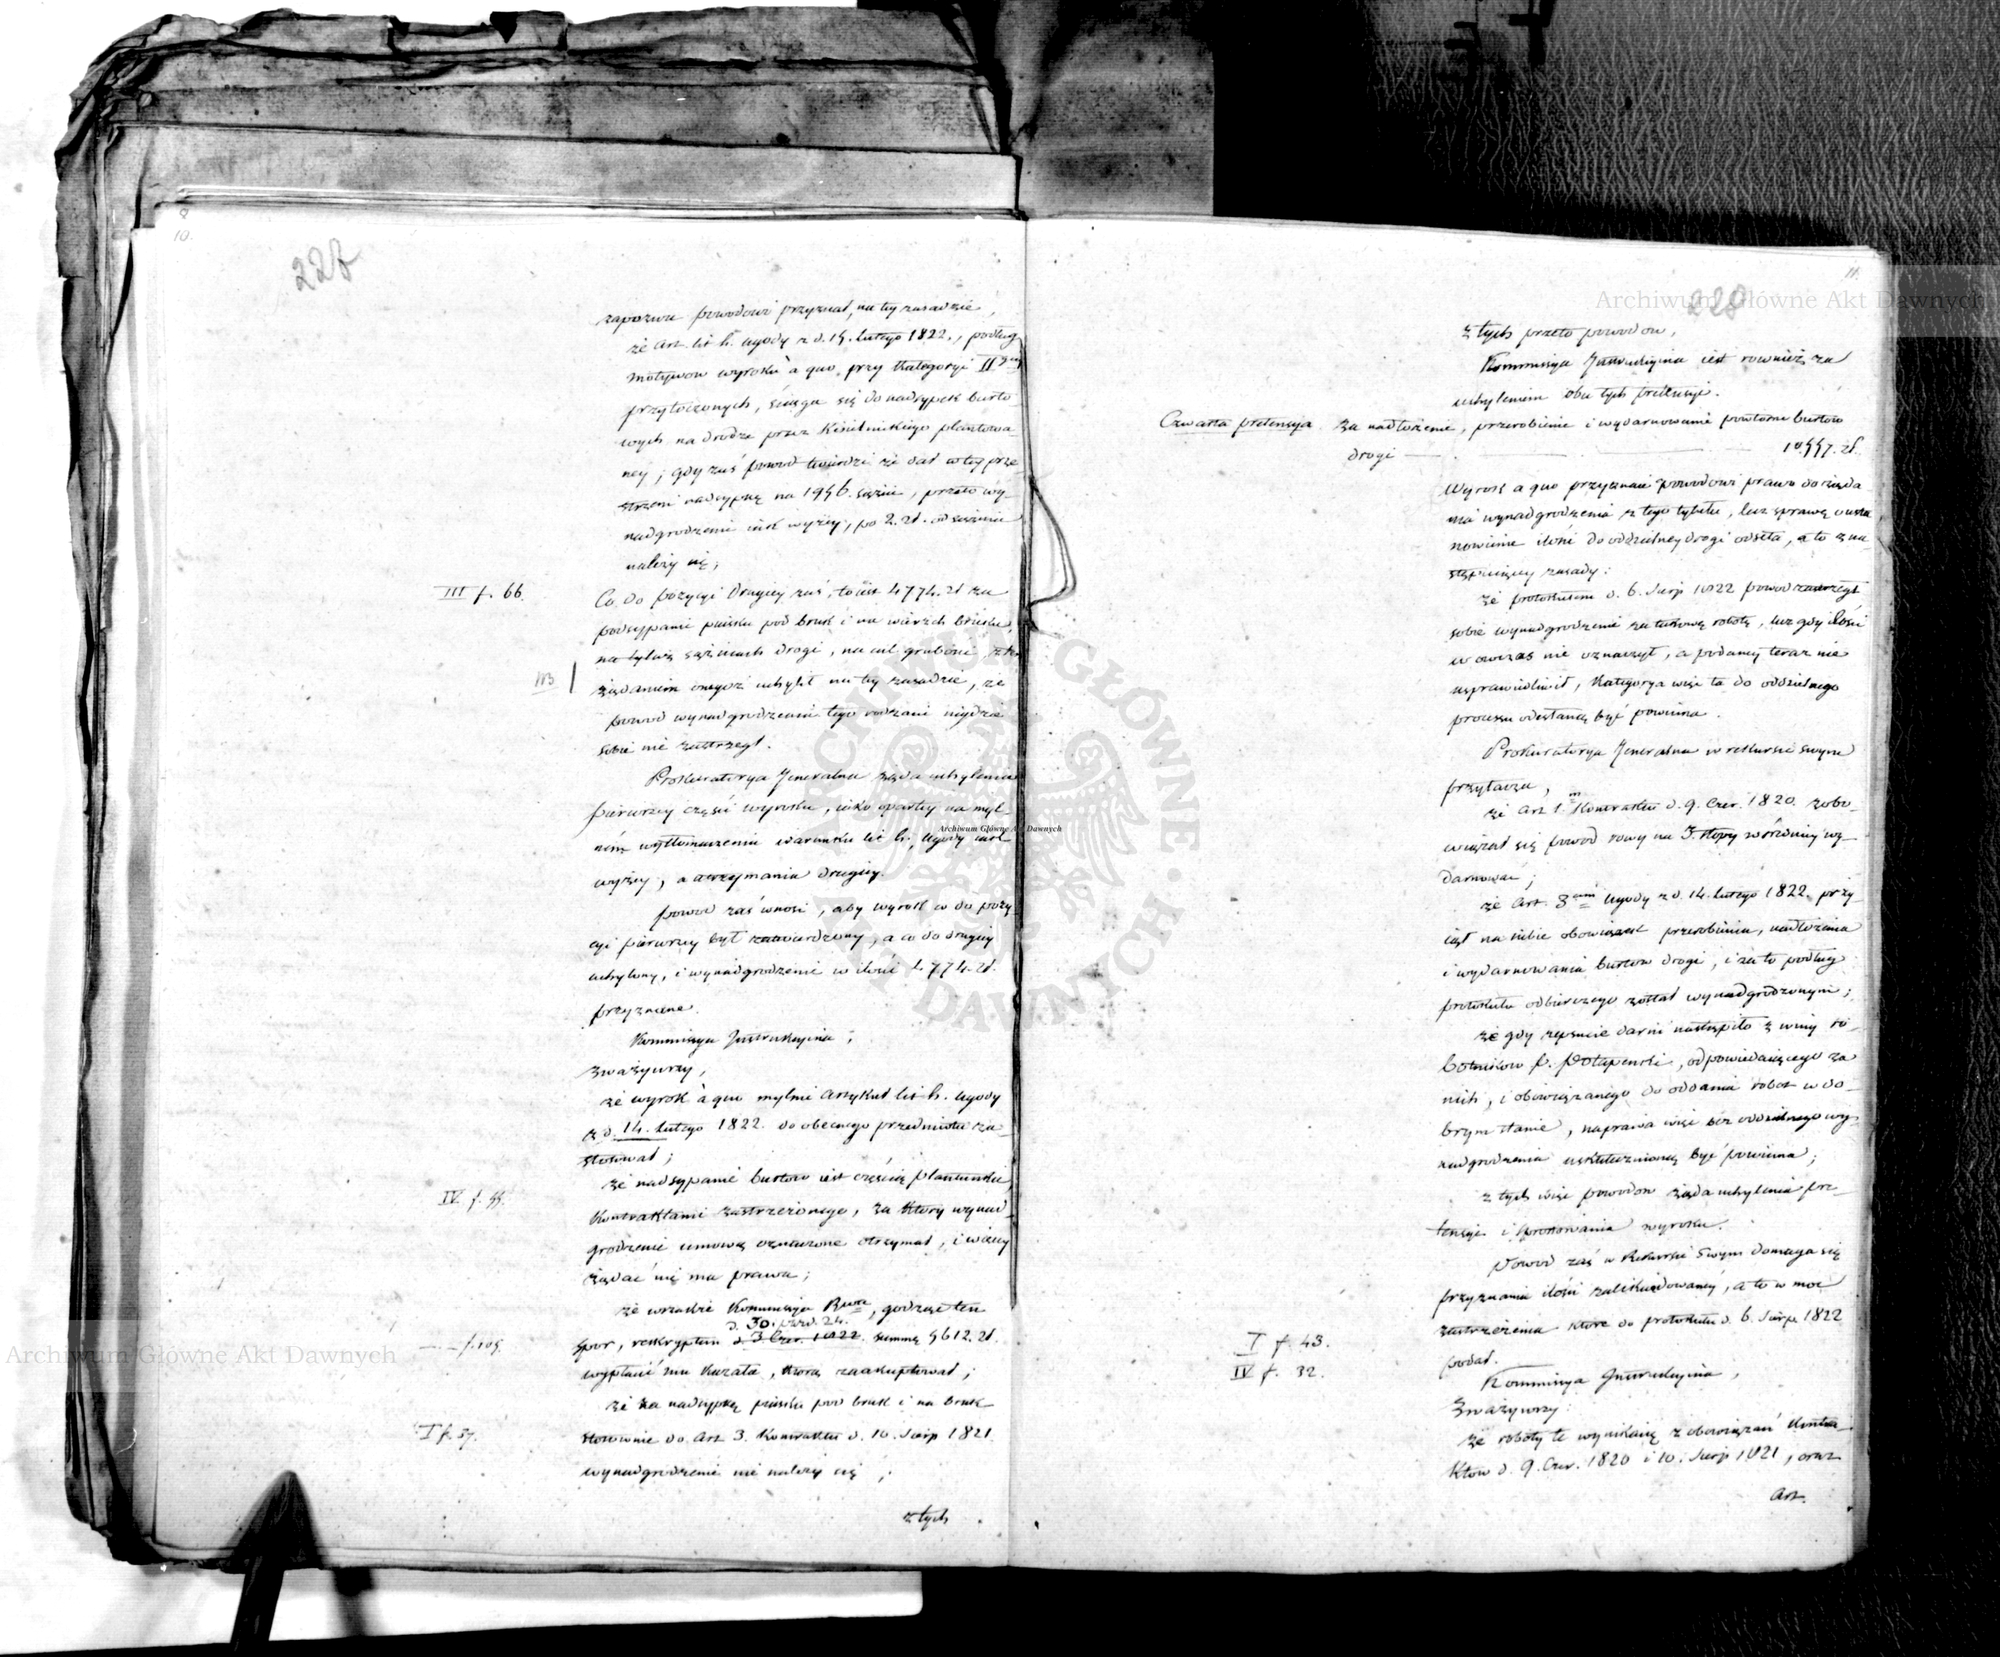 8
10.
227
zapozwu powodowi przyznał, na tey zasadzie,
że Art. lit. h. ugody z d. 14. Lutego 1822., podług
motywow wyroku à quo, przy Kategoryi II
przytoczonych, ściąga się do nadsypek burto-
wych na drodze przez Kisielnickiego plantowa-
ney; gdy zaś powod twierdzi że dał w tey prze-
strzeni nadsypkę na 1956. sążni, przeto wy-
nadgrodzenie iak wyżey, po 2. zł. od sążnia
należy się;
III f. 66.
Co do pozycyi drugiey zaś, to iest 4774. zł za
podsypanie piasku pod bruk i na wierzch bruku,
na tyluż sążniach drogi, na cal grubości, z tem
żądaniem onegoż uchylił na tey zasadzie, że
powod wynadgrodzenia tego rodzaiu nigdzie
sobie nie zastrzegł.
Prokuratorya Jeneralna żąda uchylenia
pierwszey części wyroku, iako opartey na myl-
ném wytłomaczeniu warunku lit h. ugody iak
wyżey, a utrzymania drugiey.
Powod zaś wnosi, aby wyrok co do pozy-
cyi pierwszey był zatwierdzony, a co do drugiey
uchylony, i wynadgrodzenie w ilości 4774. zł.
przyznane.
Kommissya Instrukcyina,
zważywszy,
że wyrok à quo mylnie Artykuł lit h. ugody
z d. 14. Lutego 1822. do obecnego przedmiotu za-
stosował;
że nadsypanie burtow iest częścią plantunku
IV f. 55.
Kontraktami zastrzeżonego, za który wynad-
grodzenie umową oznaczone otrzymał, i więcey
żądać nie ma prawa;
że wszakże Kommissya, godząc ten
d. 30. paźd. 24.
f. 105.
spor, reskryptem d. 3 Czer. 1822. summę 5612. zł.
wypłacić mu kazała, którą zaakceptował;
że za nadsypkę piasku pod bruk i na bruk
I f. 57.
stosownie do Art 3. Kontraktu d. 10. Sierp 1821.
wynadgrodzenie nie należy się;
z tych
11.
228
z tych przeto powodow,
Kommissya Instrukcyina iest rownież za
uchyleniem obu tych pretensyi.
Czwarta pretensya za nadłożenie, przerobienie i wydarnowanie powtorne burtow
drogi — 10,557. zł.
Wyrok a quo przyznaie powodowi prawo do żąda-
nia wynadgrodzenia z tego tytułu, lecz sprawę o usta-
nowienie ilości do oddzielney drogi odsyła, a to z na-
stępuiącey zasady:
że protokułem d. 6. Sierp 1822 powod zastrzegł
sobie wynadgrodzenie za takową robotę, lecz gdy ilości
wowczas nie oznaczył, a podaney teraz nie
usprawiedliwił, Kategorya więc ta do oddzielnego
processu odesłaną być powinna.
Prokuratorya Jeneralna w rekursie swym
przytacza,
że Art 1. Kontraktu d. 9. Czer. 1820. zobo-
wiązał się powod rowy na 3. stopy wy-
darnować;
że Art. 3 ugody z d. 14. Lutego 1822. przy-
iął na siebie obowiązek przerobienia, nadłożenia
i wydarnowania burtow drogi, i za to podług
protokułu odbiorczego został wynadgrodzonym;
że gdy zepsucie darni nastąpiło z winy ro-
botnikow P. Potapenski, odpowiedaiącego za
nich, i obowiązanego do oddania robot w do-
brym stanie, naprawa więc bez oddzielnego wy-
nadgrodzenia uskutecznioną być powinna;
z tych więc powodow żąda uchylenia pre-
tensyi i sprostowania wyroku.
Powod zaś w Rekursie swym domaga się
przyznania ilości zalikwidowaney, a to w moc
zastrzeżenia które do protokułu d. 6. Sierp 1822
podał.
I f. 43.
IV f. 32.
Kommissya Instrukcyina,
Zważywszy:
że roboty te wynikaią z obowiązań Kontra-
ktow d. 9. Czer. 1820 i 10. Sierp 1821, oraz
Art.
Archiwum Główne Akt Dawnych
Archiwum Główne Akt Dawnych
Archiwum Główne Akt Dawnych
ARCHIWUM GŁÓWNE AKT DAWNYCH